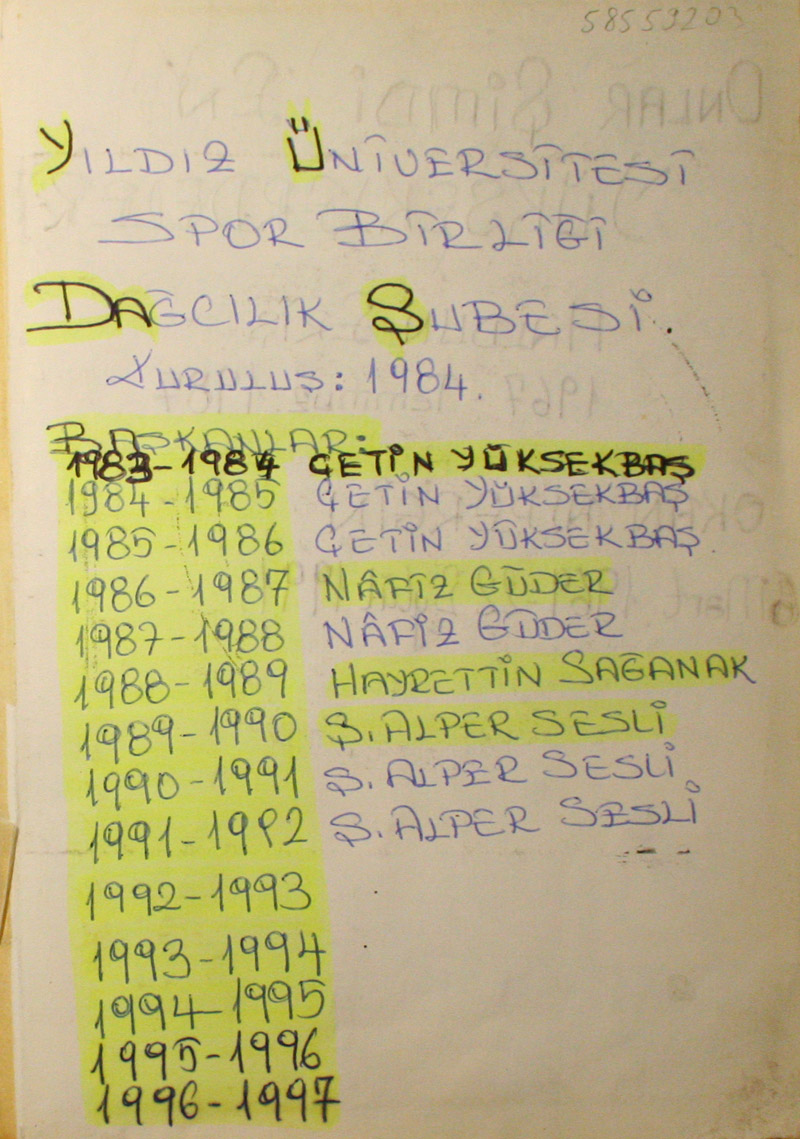 58559203
YILDIZ ÜNİVERSİTESİ
SPOR BİRLİĞİ
DAĞCILIK ŞUBESİ.
KURULUŞ: 1984.
BAŞKANLAR:
1983-1984 ÇETİN YÜKSEKBAŞ
1984-1985 ÇETİN YÜKSEKBAŞ
1985-1986 ÇETİN YÜKSEKBAŞ
1986-1987 NÂFİZ GÜDER
1987-1988 NÂFİZ GÜDER
1988-1989 HAYRETTİN SAĞANAK
1989-1990 Ş. ALPER SESLİ
1990-1991 Ş. ALPER SESLİ
1991-1992 Ş. ALPER SESLİ
1992-1993
1993-1994
1994-1995
1995-1996
1996-1997